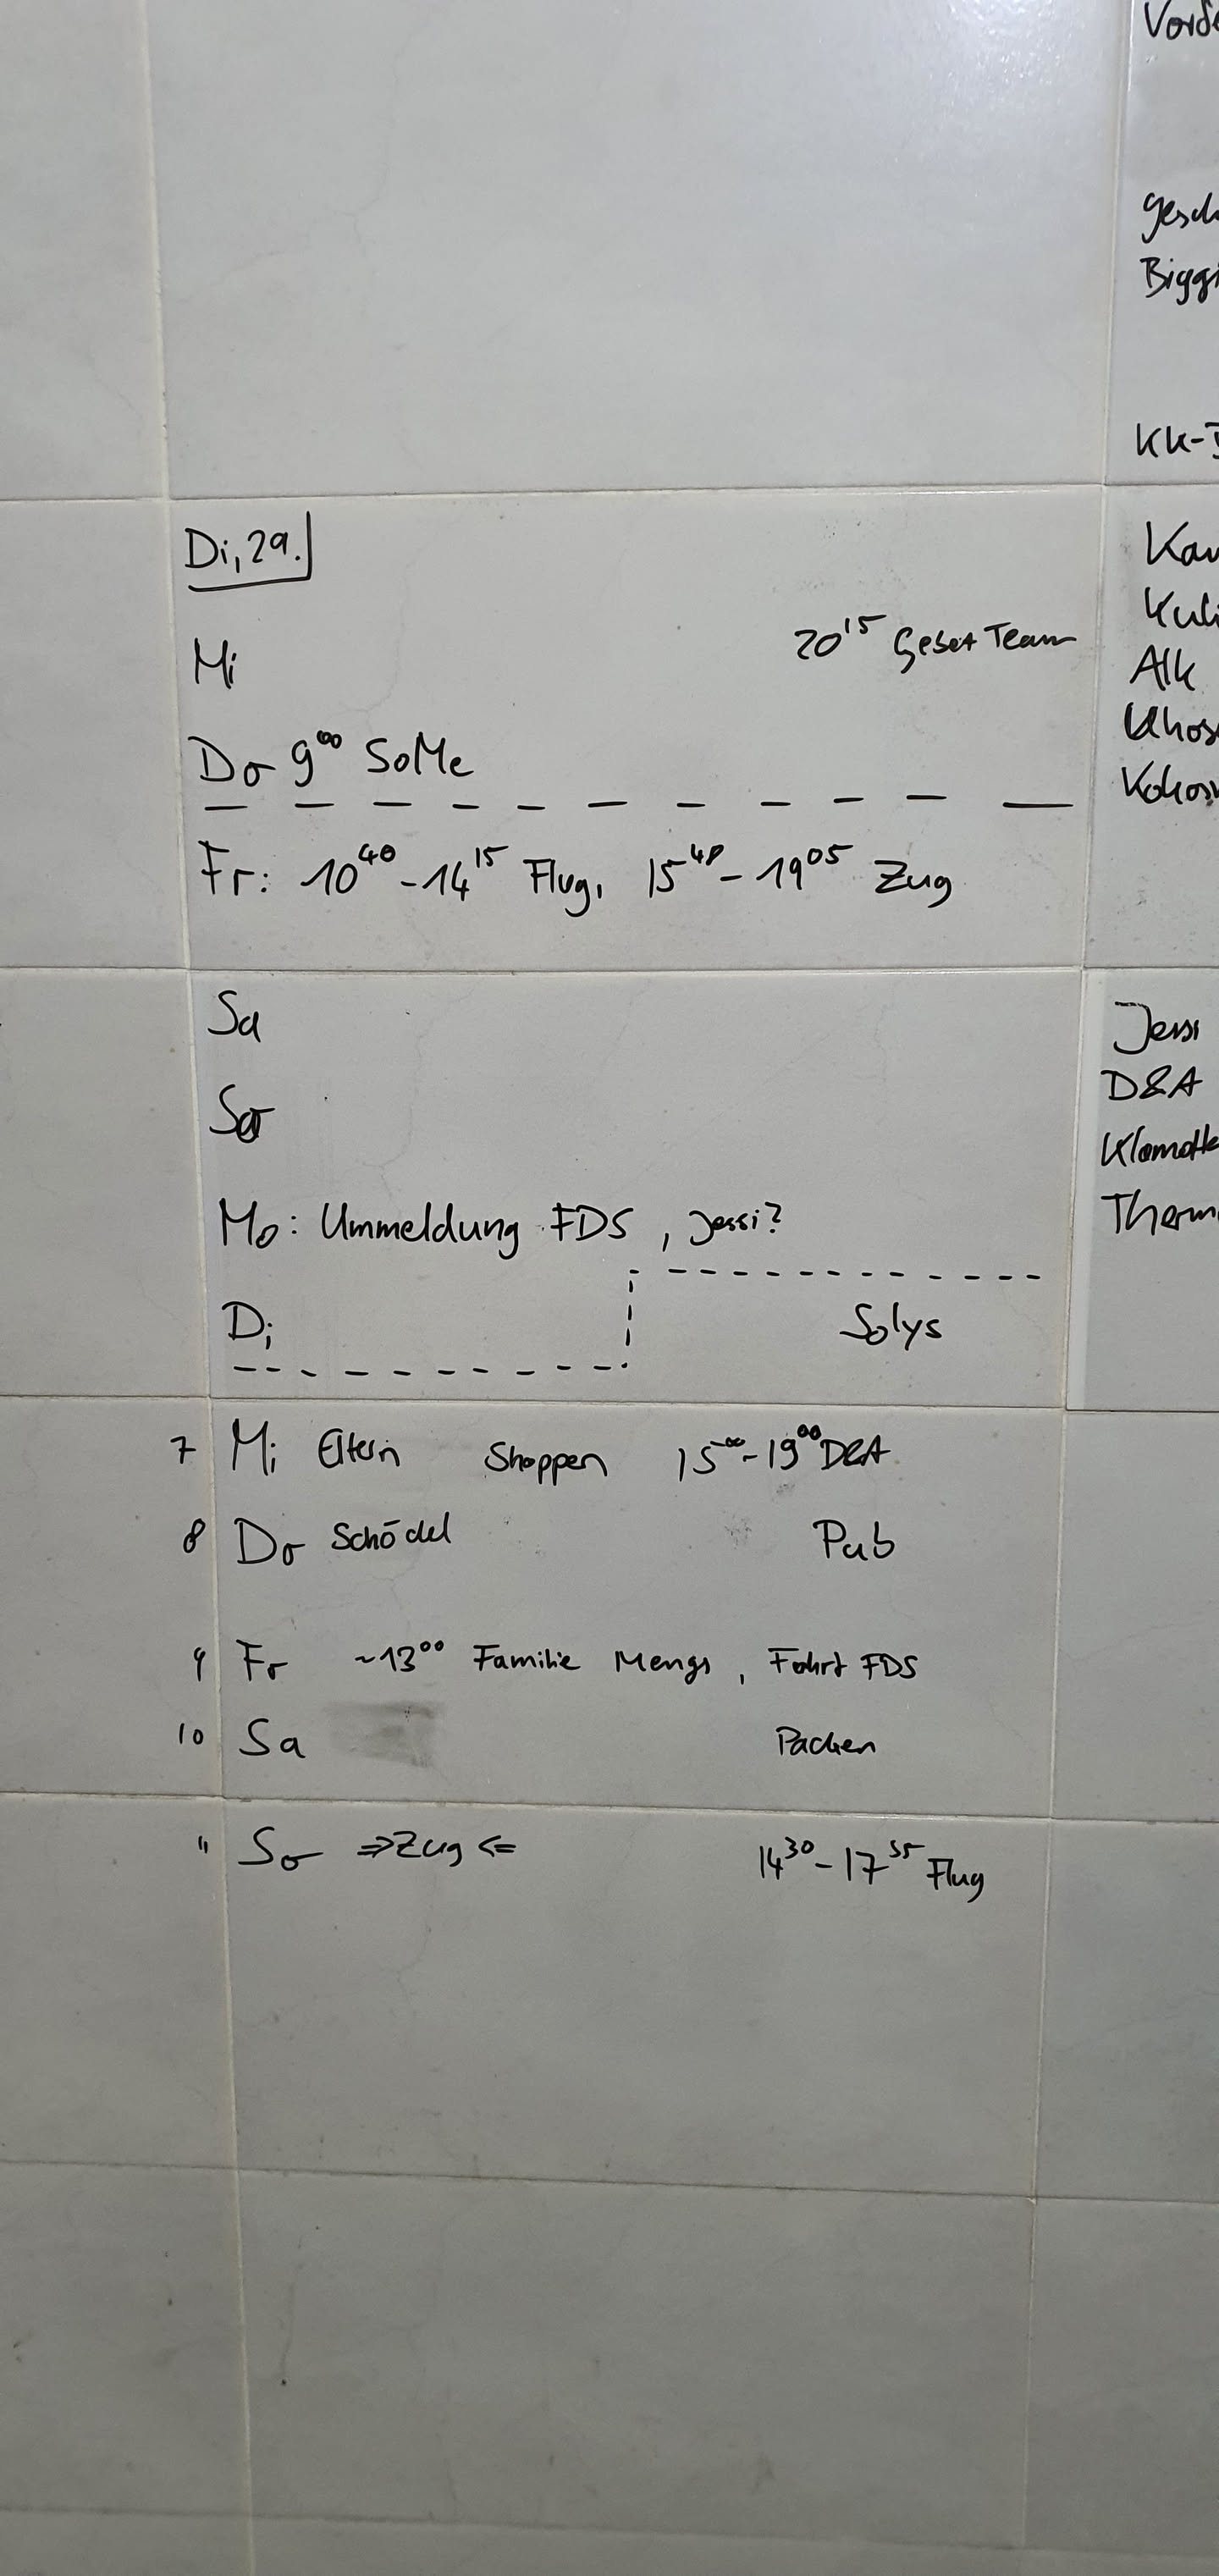 Di, 29.
Mi 20¹⁵ Gebet Team
Do 9⁰⁰ SoMe
Fr: 10⁴⁰ - 14¹⁵ Flug, 15⁴⁸ - 19⁰⁵ Zug
Sa
So
Mo: Ummeldung FDS, Jessi?
Di Solys
7 Mi Eltern Shoppen 15⁰⁰ - 19⁰⁰ D&A
8 Do Schödel Pub
9 Fr ~13⁰⁰ Familie Mengs, Fahrt FDS
10 Sa Packen
11 So ⇒Zug⇐ 14³⁰ - 17³⁵ Flug
Alk
Jessi
D&A